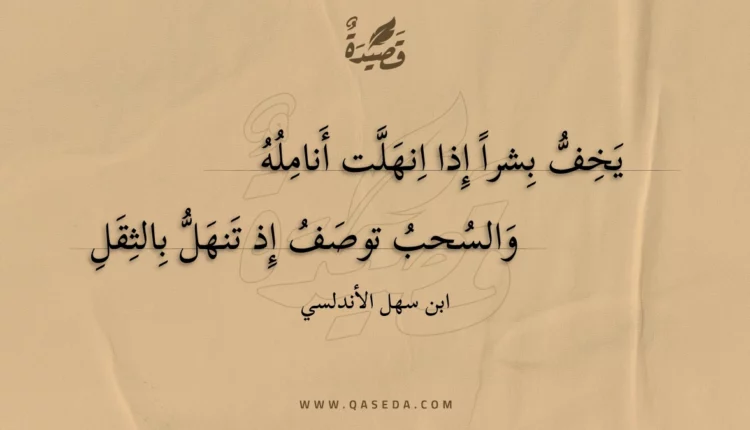 قَصِيدَةٌ
يَخِفُّ بِشراً إِذا اِنهَلَّت أَنامِلُهُ
وَالسُحبُ توصَفُ إِذ تَنهَلُّ بِالثِقَلِ
ابن سهل الأندلسي
WWW.QASEDA.COM